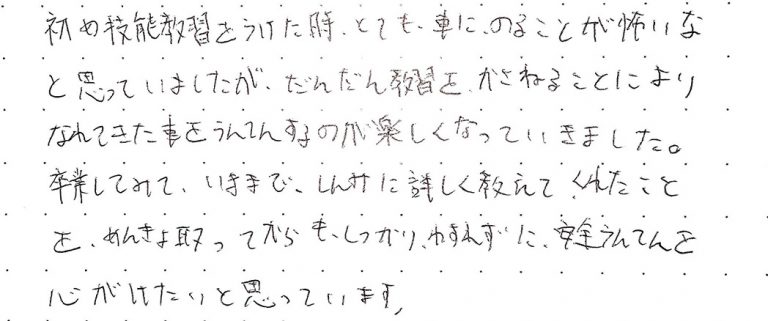 初め技能教習をうけた時、とても、車に、のることが怖いな
と思っていましたが、だんだん教習を、かさねることにより
なれてきた事をうんてんするのが楽しくなっていきました。
卒業してみて、いままで、しんみに詳しく教えてくれたこと
を、めんきょ取ってからも、しっかり、わすれずに、安全うんてんを
心がけたいと思っています,